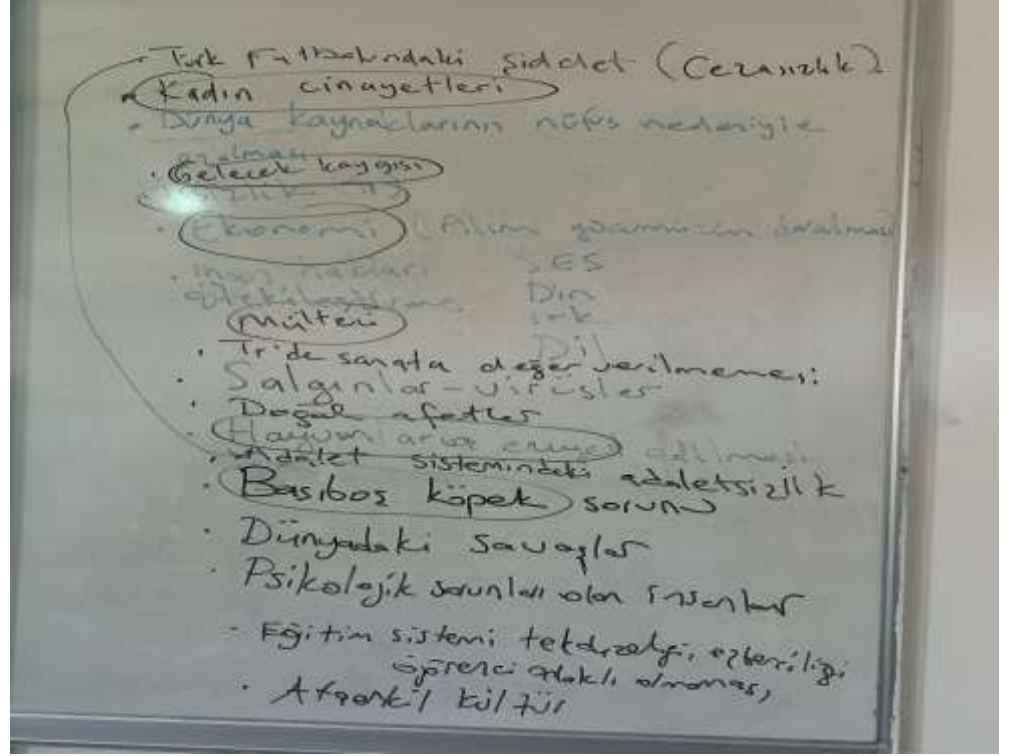 - Türk Futbolundaki şiddet (Cezasızlık)
Kadın cinayetleri
. Dünya kaynaklarının nüfus nedeniyle
azalması
. Gelecek kaygısı
. Ekonomi (Alım gücümüzün azalması
. İnsan hakları SES
ötekileştirme Din
Mülteci ırk
Dil
. Tr'de sanata değer verilmemesi
. Salgınlar - virüsler
. Doğal afetler
. Hayvanlara eziyet edilmesi
. Adalet sistemindeki adaletsizlik
. Başıboş köpek sorunu
. Dünyadaki savaşlar
. Psikolojik sorunları olan insanlar
- Eğitim sistemi tekdüzeliği, ezberciliği
öğrenci odaklı olmaması,
. Ataerkil kültür